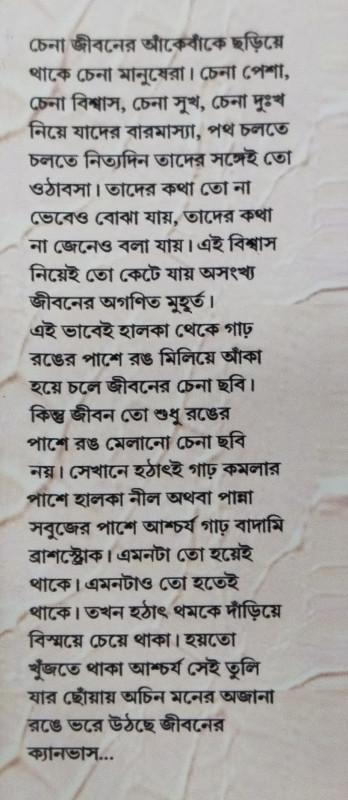 চেনা জীবনের আঁকেবাঁকে ছড়িয়ে
থাকে চেনা মানুষেরা। চেনা পেশা,
চেনা বিশ্বাস, চেনা সুখ, চেনা দুঃখ
নিয়ে যাদের বারমাস্যা, পথ চলতে
চলতে নিত্যদিন তাদের সঙ্গেই তো
ওঠাবসা। তাদের কথা তো না
ভেবেও বোঝা যায়, তাদের কথা
না জেনেও বলা যায়। এই বিশ্বাস
নিয়েই তো কেটে যায় অসংখ্য
জীবনের অগণিত মুহূর্ত।
এই ভাবেই হালকা থেকে গাঢ়
রঙের পাশে রঙ মিলিয়ে আঁকা
হয়ে চলে জীবনের চেনা ছবি।
কিন্তু জীবন তো শুধু রঙের
পাশে রঙ মেলানো চেনা ছবি
নয়। সেখানে হঠাৎই গাঢ় কমলার
পাশে হালকা নীল অথবা পান্না
সবুজের পাশে আশ্চর্য গাঢ় বাদামি
ব্রাশস্ট্রোক। এমনটা তো হয়েই
থাকে। এমনটাও তো হতেই
থাকে। তখন হঠাৎ থমকে দাঁড়িয়ে
বিস্ময়ে চেয়ে থাকা। হয়তো
খুঁজতে থাকা আশ্চর্য সেই তুলি
যার ছোঁয়ায় অচিন মনের অজানা
রঙে ভরে উঠছে জীবনের
ক্যানভাস...